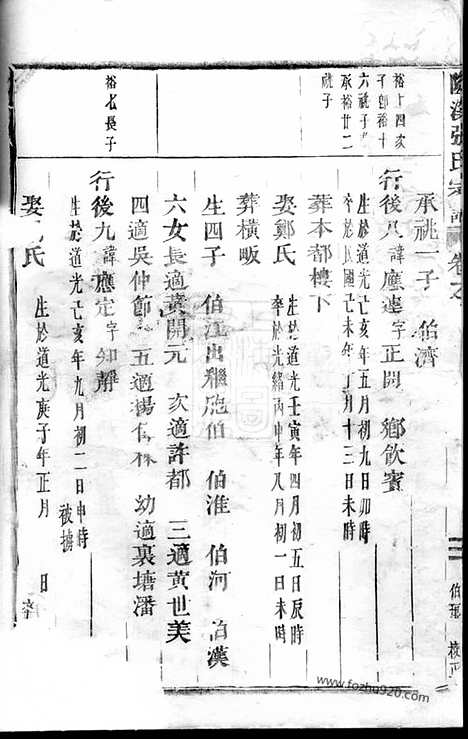 張氏宗譜
承祧一子 伯濟
裕十四次
子卽裕十
六祧子
承裕廿二
祧子
行後八諱應連字正開 鄉飲賓
生於道光己亥年五月初九日卯時
卒於民國己未年 月十三日未時
葬本都樓下
娶鄭氏
生於道光壬寅年四月初五日辰時
卒於光緒丙申年八月初一日未時
葬橫畈
生四子 伯江出繼 伯 伯淮 伯河 伯漢
六女長適黃開元 次適許都 三適黃世美
四適吳仲節 五適楊 幼適裏塘潘
裕 長子
行後九諱應定字如靜
生於道光己亥年九月初二日申時
被擄
娶 氏
生於道光庚子年正月 日
卒
伯 校正
www.fozhu920.com